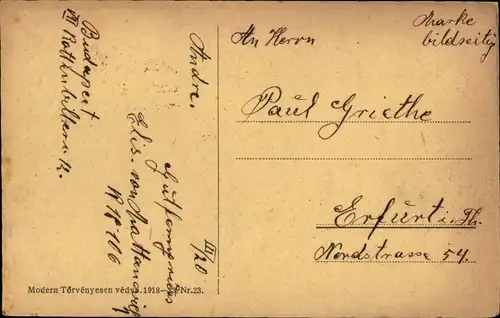 Marke
bildseitig
An Herrn
Paul Griethe
Erfurt i. Th.
Nordstrasse 54.
Budapest
VII
Andre.
III/20
Elis. von
N 18706
Modern Törvényesen védve. 1918— Nr. 23.